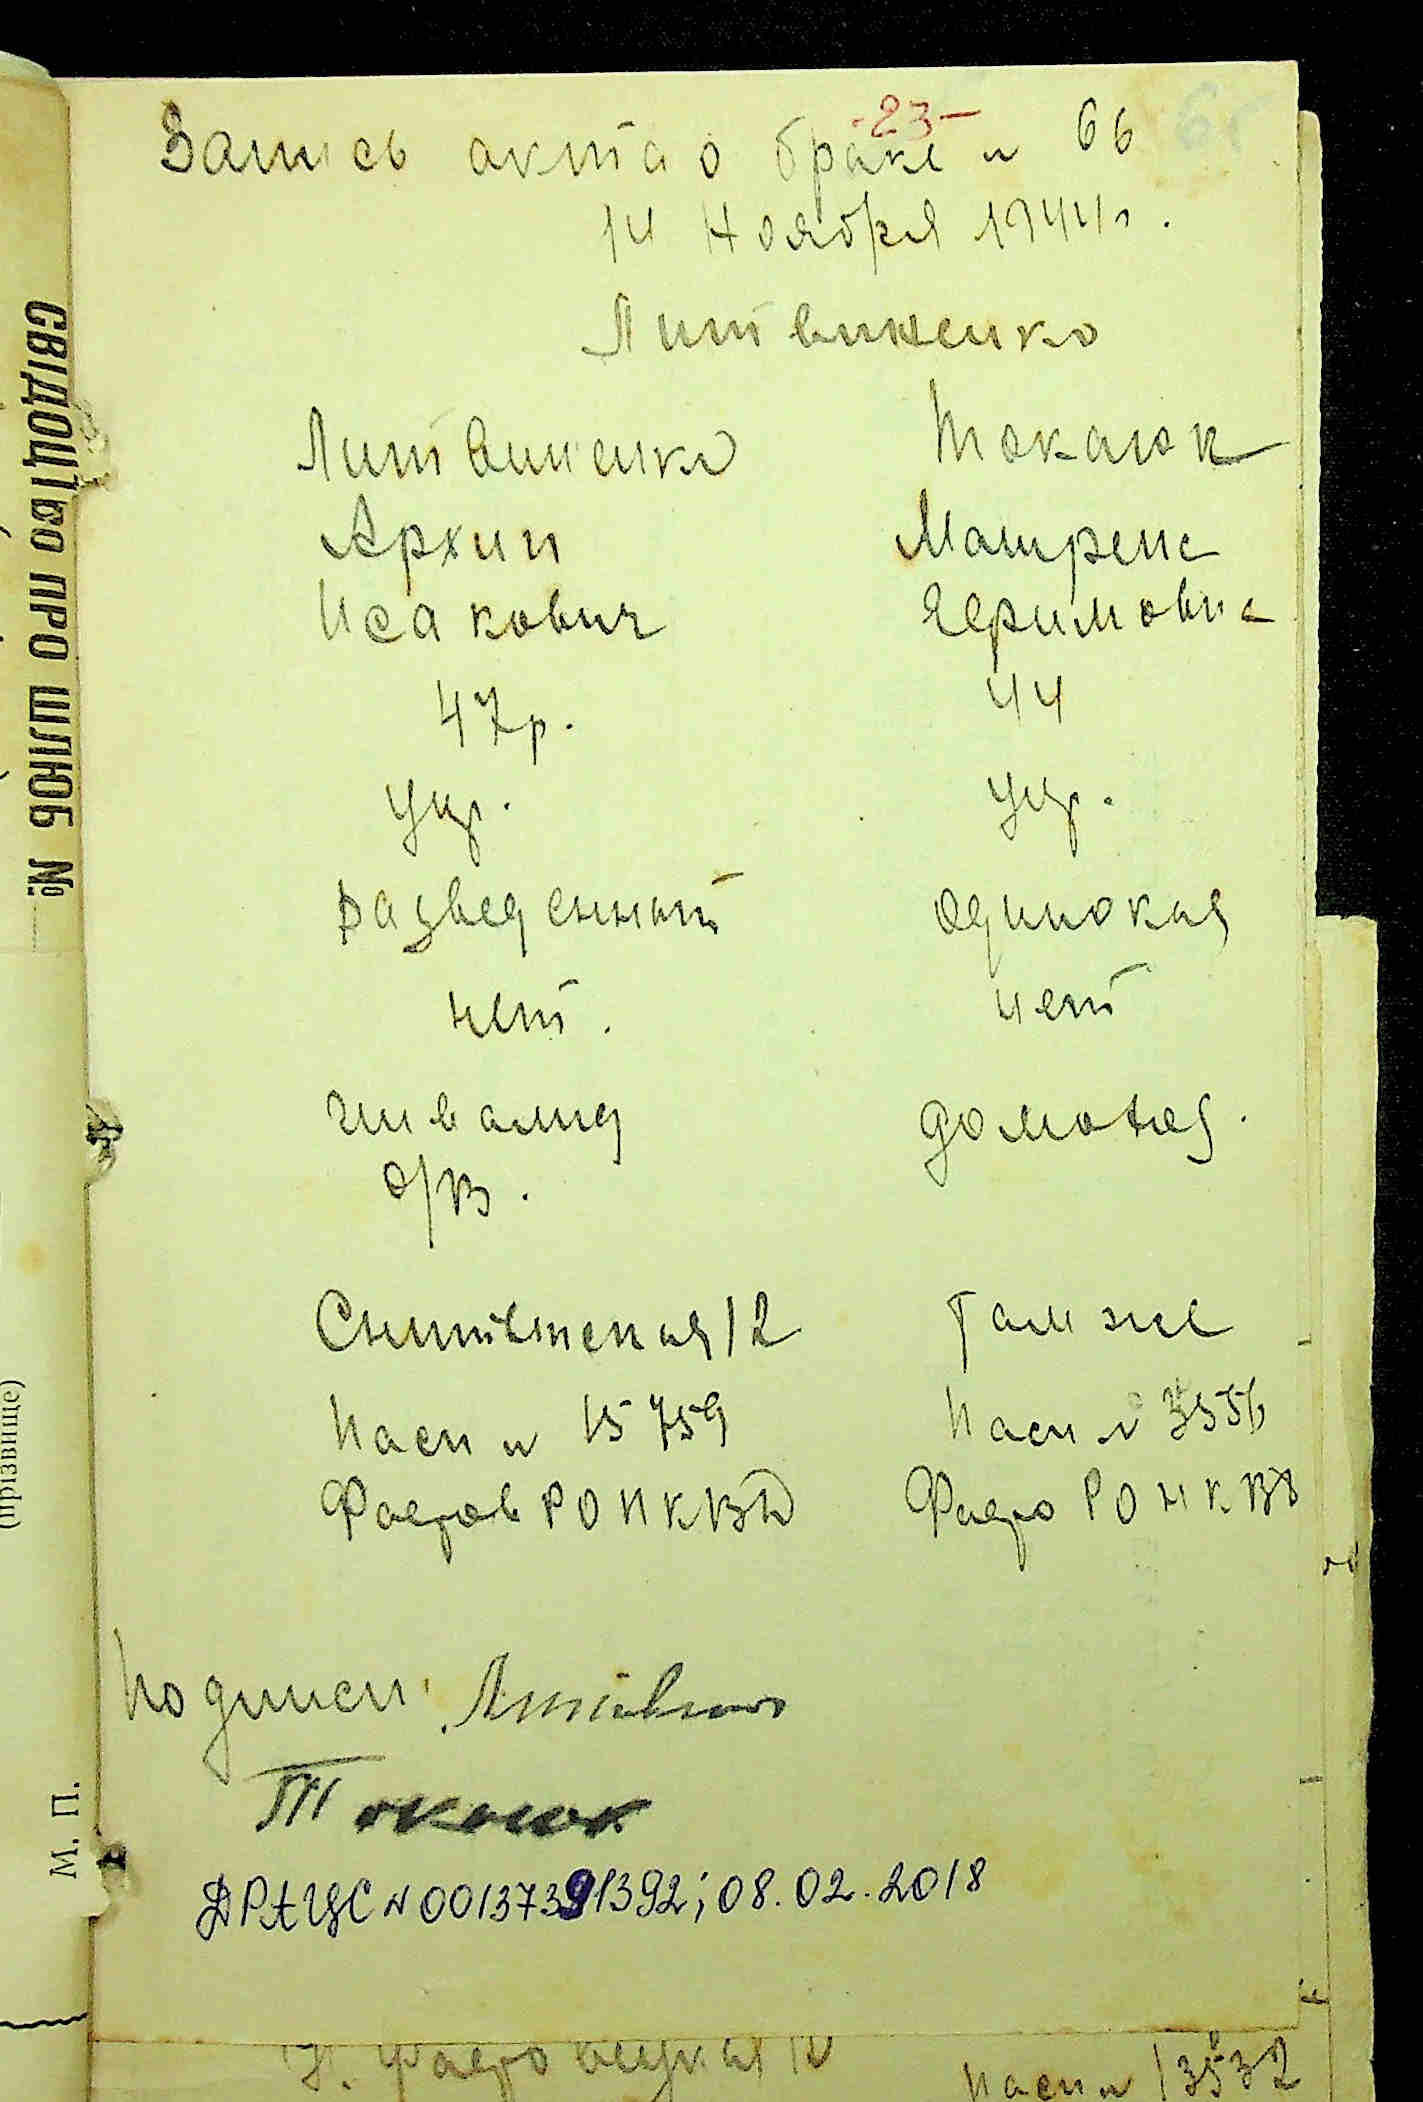 -23-
Запись акта о браке № 66
14 Ноября 1944 г.
Литвиненко
Литвиненко Токаюк
Архип Матрена
Исакович
47 р. 44
укр. укр.
разведенный одинокая
нет. нет
инвалид домохоз.
О/В.
12 Там же
Пасп № 15759 Пасп № 3556
Фастов РО НКВД Фасто РО НКВД
Подписи: Литвин
Токаюк
ДРАЦС № 00137391392; 08.02.2018
СВІДОЦТВО ПРО ШЛЮБ №
(прізвище)
М. П.
Пасп № 13532